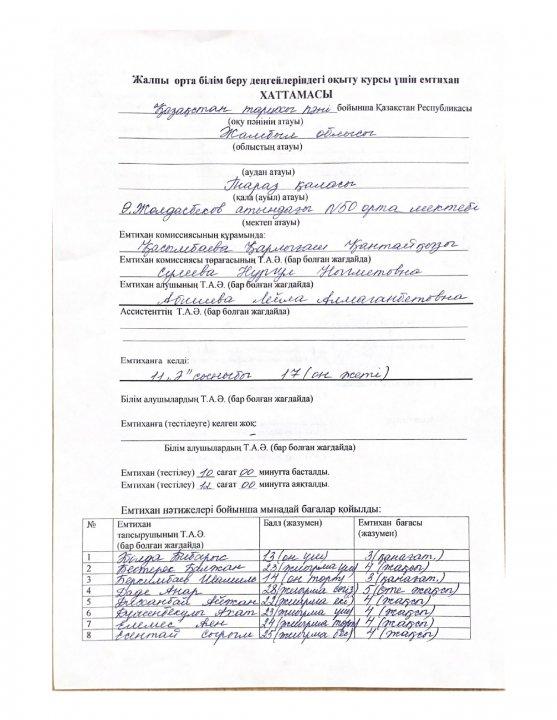 Жалпы орта білім беру деңгейлеріндегі оқыту курсы үшін емтихан
ХАТТАМАСЫ
Қазақстан тарихы пәні бойынша Қазақстан Республикасы
(оқу пәнінің атауы)
Жамбыл облысы
(облыстың атауы)
(аудан атауы)
Тараз қаласы
(қала (ауыл) атауы)
Ө.Жолдасбеков атындағы N50 орта мектебі
(мектеп атауы)
Емтихан комиссиясының құрамында:
Қасымбаева Қарлығаш
Емтихан комиссиясы төрағасының Т.А.Ә. (бар болған жағдайда)
Сулеева Нургул
Емтихан алушының Т.А.Ә. (бар болған жағдайда)
Абишева Лейла Алмаганбетовна
Ассистенттің Т.А.Ә. (бар болған жағдайда)
Емтиханға келді:
11 "Ә" сыныбы 17 (он жеті)
Білім алушылардың Т.А.Ә. (бар болған жағдайда)
Емтиханға (тестілеуге) келген жоқ:
-
Білім алушылардың Т.А.Ә. (бар болған жағдайда)
Емтихан (тестілеу) 10 сағат 00 минутта басталды.
Емтихан (тестілеу) 12 сағат 00 минутта аяқталды.
Емтихан нәтижелері бойынша мынадай бағалар қойылды:
№ Емтихан тапсырушының Т.А.Ә. (бар болған жағдайда) Балл (жазумен) Емтихан бағасы (жазумен)
1 Бибарыс 13 (он үш) 3 (қанағат.)
2 Бектерек Балжан 23 (жиырма үш) 4 (жақсы)
3 14 (он төрт) 3 (қанағат.)
4 Даде Анар 28 (жиырма сегіз) 5 (өте жақсы)
5 Айжан 22 (жиырма екі) 4 (жақсы)
6 23 (жиырма үш) 4 (жақсы)
7 Елемес 24 (жиырма төрт) 4 (жақсы)
8 Есентай Сырым 25 (жиырма бес) 4 (жақсы)